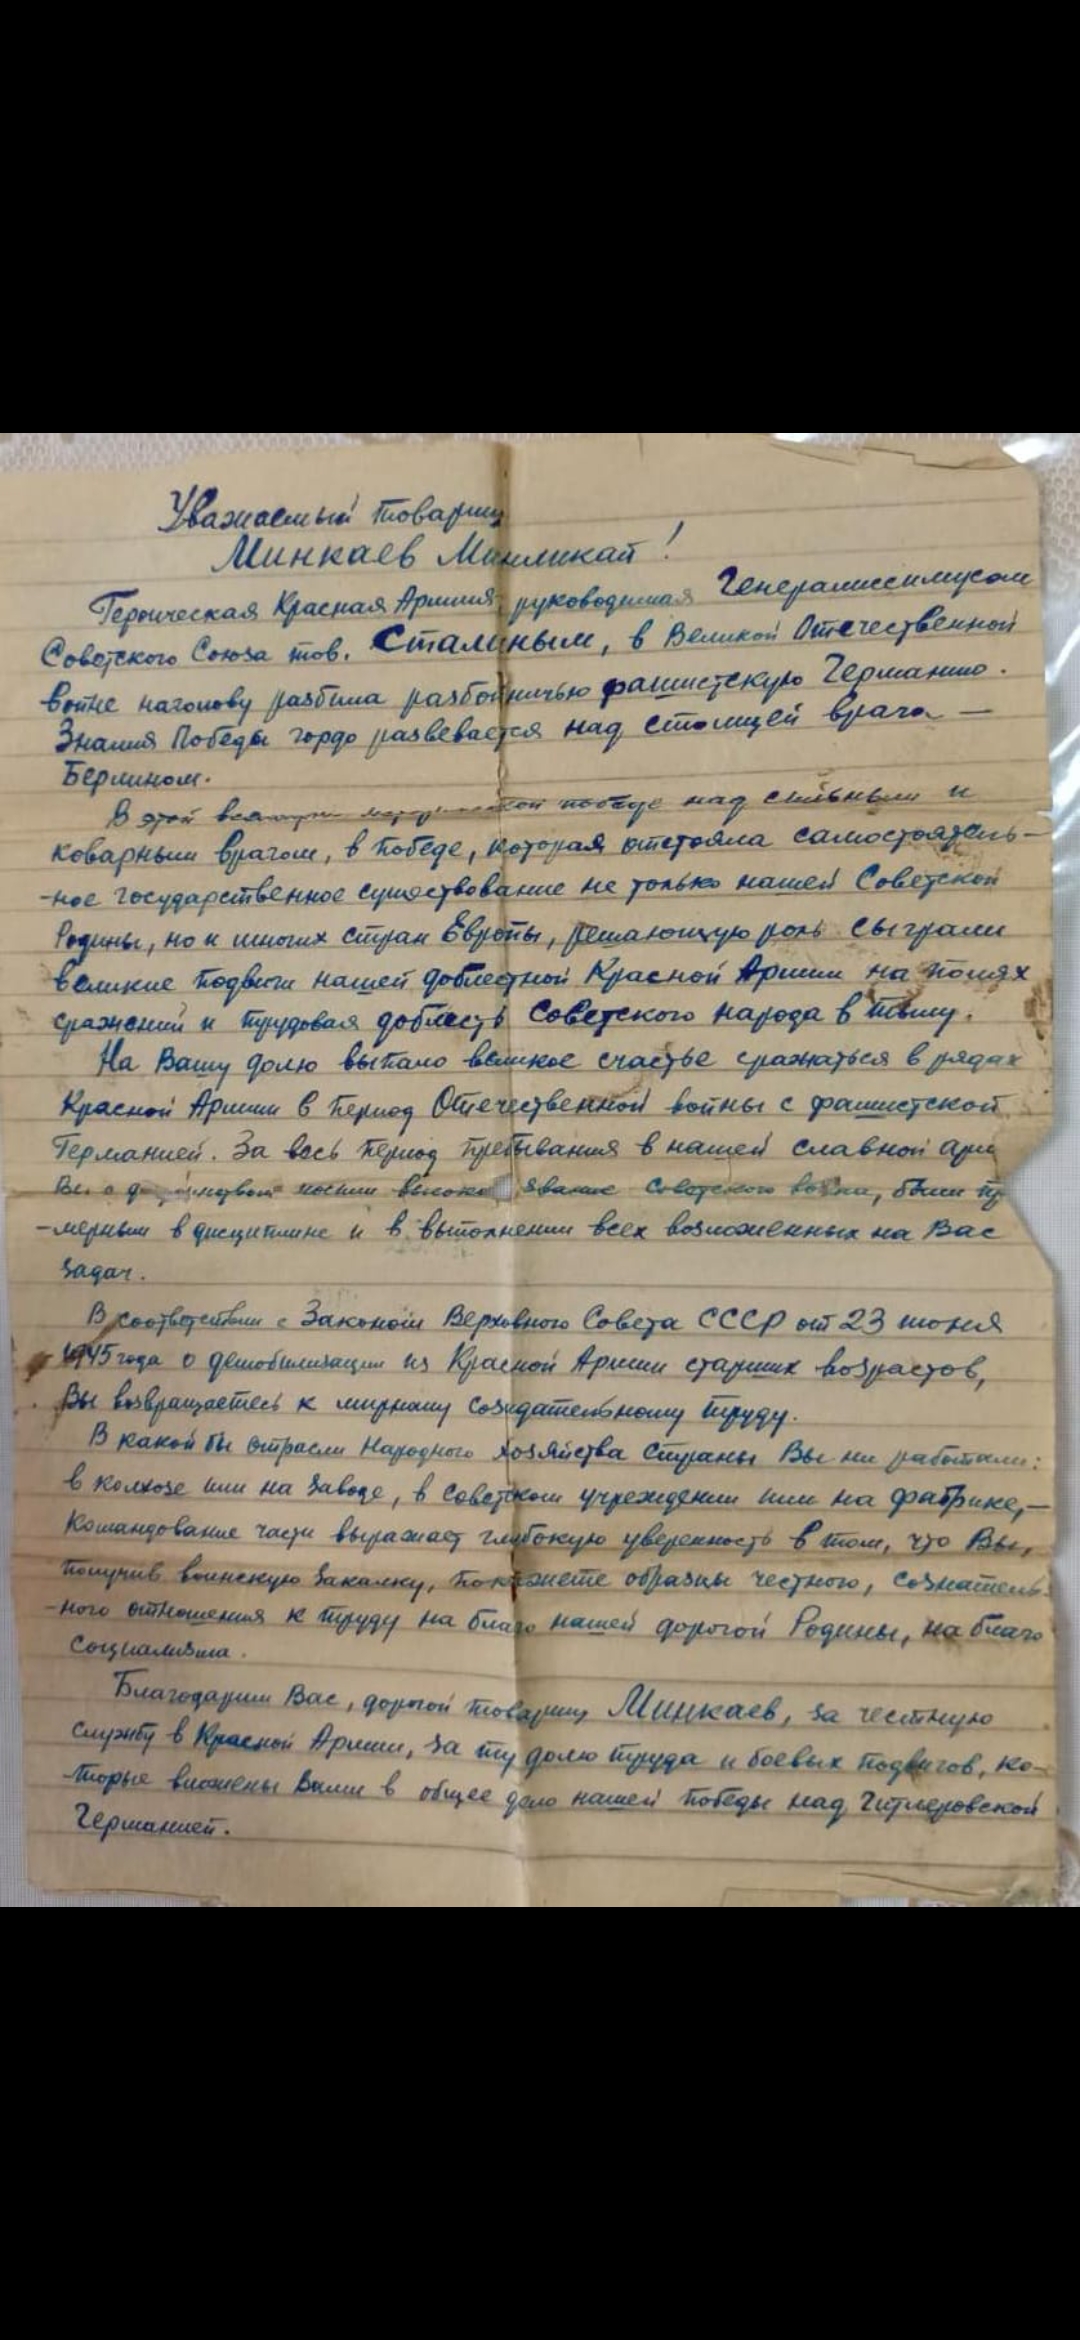 Уважаемый товарищ
Минкаев Минликай!
Героическая Красная Армия, руководимая Генералиссимусом
Советского Союза тов. Сталиным, в Великой Отечественной
войне наголову разбила разбойничью фашистскую Германию.
Знамя Победы гордо развевается над столицей врага —
Берлином.
В этой исторической победе над сильным и
коварным врагом, в победе, которая отстояла самостоятель-
-ное государственное существование не только нашей Советской
Родины, но и многих стран Европы, решающую роль сыграли
великие подвиги нашей доблестной Красной Армии на полях
сражений и трудовая доблесть Советского народа в тылу.
На Вашу долю выпало великое счастье сражаться в рядах
Красной Армии в период Отечественной войны с фашистской
Германией. За весь период пребывания в нашей славной арм
Вы с достоинством носили высокое звание Советского воина, были пр
-мерным в дисциплине и в выполнении всех возложенных на Вас
задач.
В соответствии с Законом Верховного Совета СССР от 23 июня
1945 года о демобилизации из Красной Армии старших возрастов,
Вы возвращаетесь к мирному созидательному труду.
В какой бы отрасли Народного хозяйства страны Вы ни работали:
в колхозе или на заводе, в советском учреждении или на фабрике, —
командование части выражает глубокую уверенность в том, что Вы,
получив воинскую закалку, покажете образцы честного, сознатель-
-ного отношения к труду на благо нашей дорогой Родины, на благо
социализма.
Благодарим Вас, дорогой товарищ Минкаев, за честную
службу в Красной Армии, за ту долю труда и боевых подвигов, ко-
-торые вложены Вами в общее дело нашей победы над Гитлеровской
Германией.